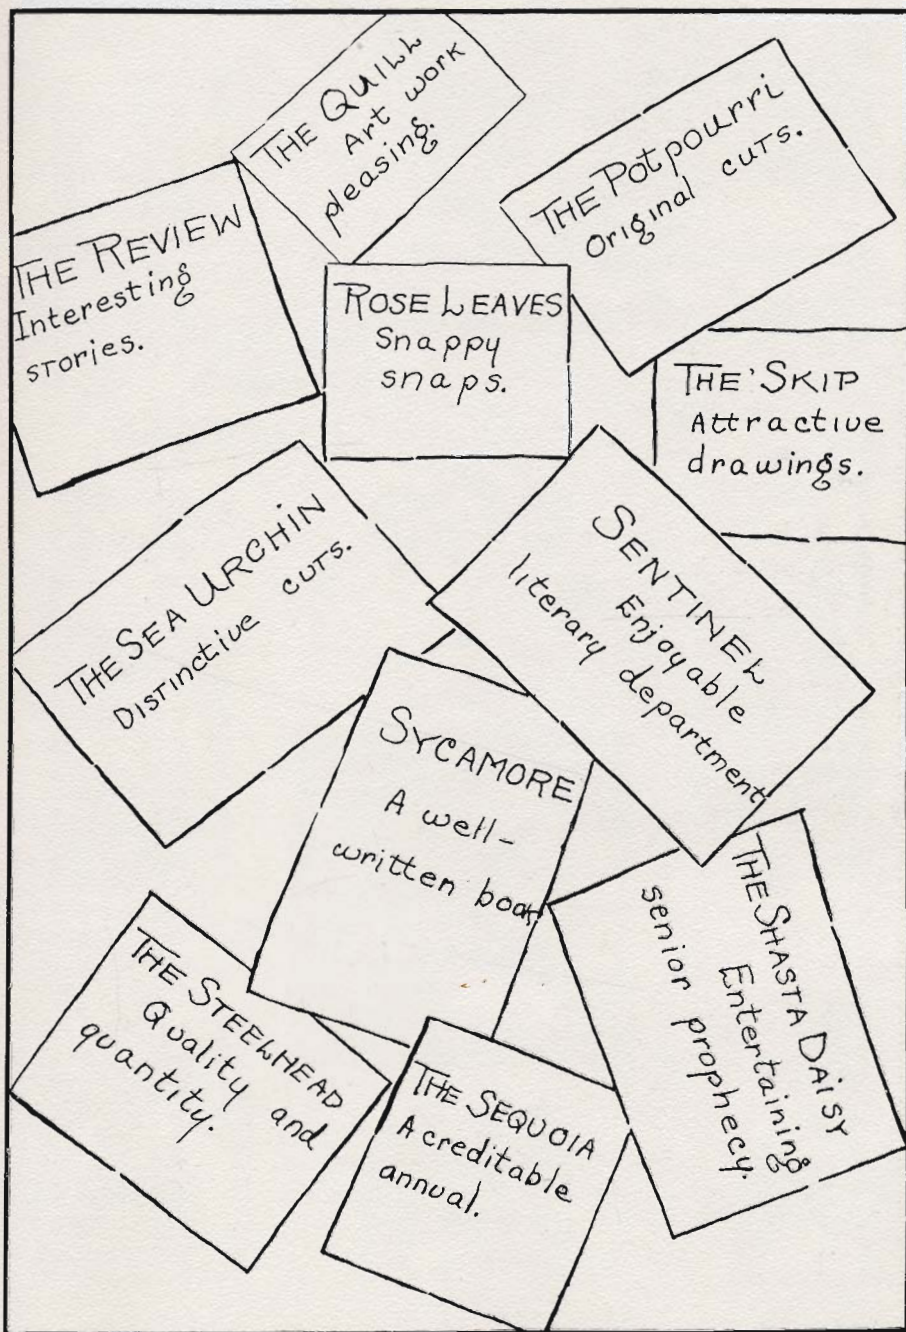 THE QUILL
Art work
pleasing.
THE Potpourri
Original cuts.
THE REVIEW
Interesting
stories.
ROSE LEAVES
Snappy
snaps.
THE 'SKIP
Attractive
drawings.
THE SEA URCHIN
Distinctive cuts.
SENTINEL
Enjoyable
literary department
SYCAMORE
A well-
written book.
THE SHASTA DAISY
Entertaining
senior prophecy.
THE STEELHEAD
Quality and
quantity.
THE SEQUOIA
A creditable
annual.